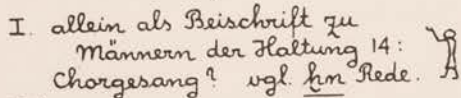 I. allein als Beischrift zu
Männern der Haltung 14:
Chorgesang? vgl. hn Rede.